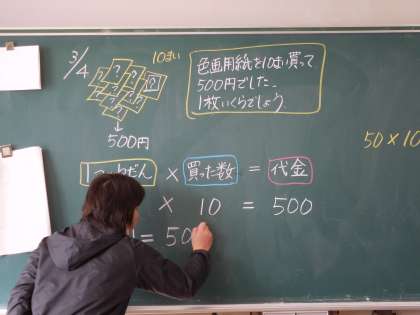 3/4
10まい
? ? ? ? ? ?
500円
色画用紙を10まい買って
500円でした。
1枚いくらでしょう
50×10
1つのねだん × 買った数 = 代金
× 10 = 500
= 50